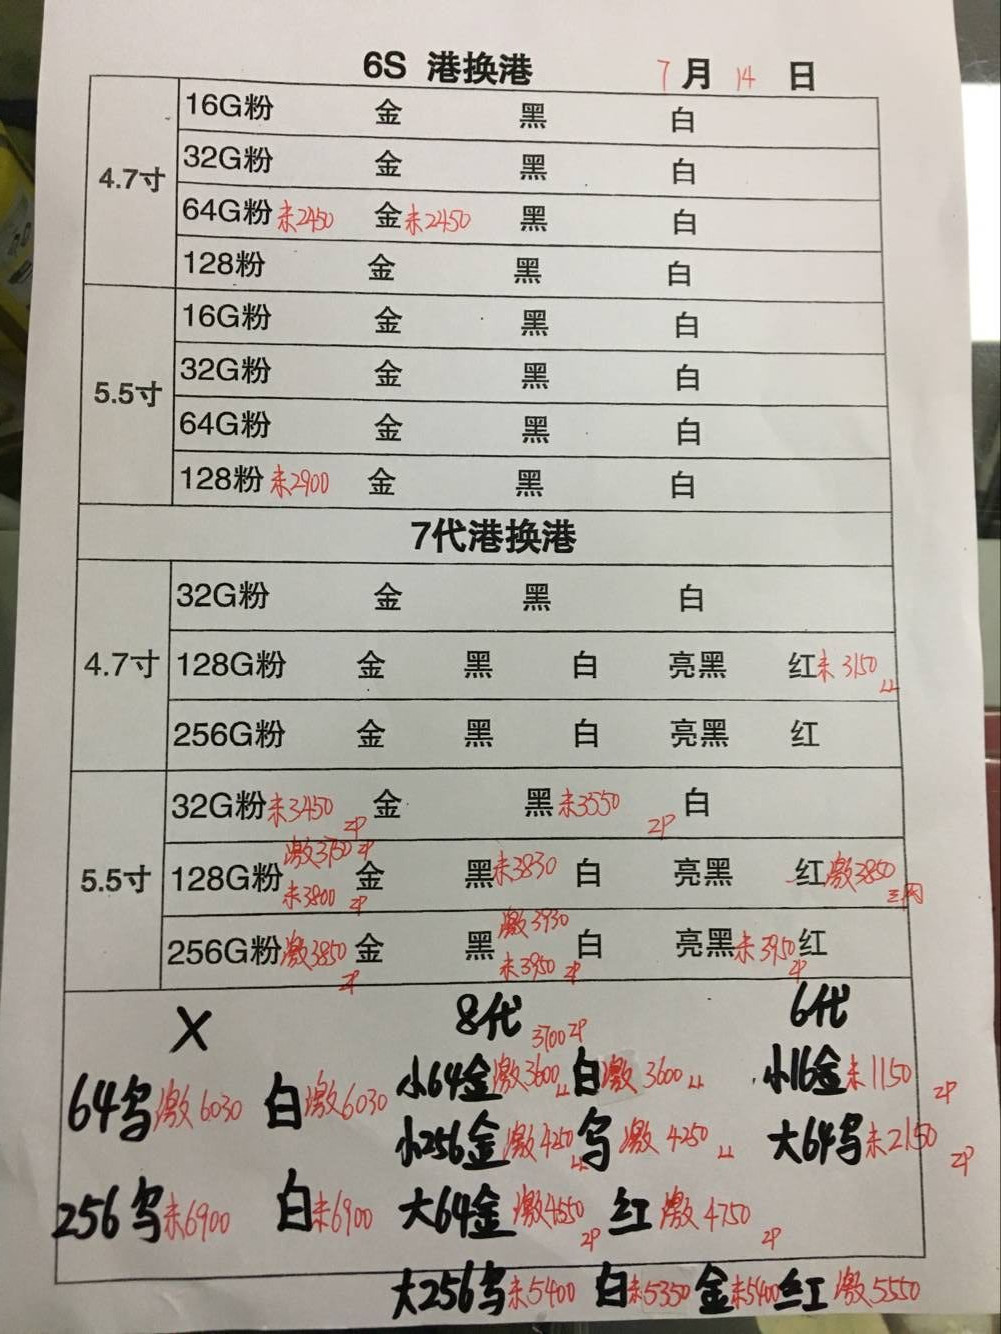 6S 港换港 7月14日
4.7寸
16G粉 金 黑 白
32G粉 金 黑 白
64G粉 未2450 金 未2450 黑 白
128粉 金 黑 白
5.5寸
16G粉 金 黑 白
32G粉 金 黑 白
64G粉 金 黑 白
128粉 未2900 金 黑 白
7代港换港
4.7寸
32G粉 金 黑 白
128G粉 金 黑 白 亮黑 红 未3150 LL
256G粉 金 黑 白 亮黑 红
5.5寸
32G粉 未3450 ZP 金 黑 未3550 ZP 白
128G粉 激3750 ZP 未3800 ZP 金 黑 未3830 白 亮黑 红 激3850 三网
256G粉 激3850 ZP 金 黑 激3930 未3950 ZP 白 亮黑 未3950 ZP 红
X 8代 6代
3700 ZP
64乌 激6030 白 激6030 小64金 激3600 LL 白 激3600 LL 小16金 未1150 ZP
小256金 激4250 LL 乌 激4250 LL 大64乌 未2150 ZP
256乌 未6900 白 未6900 大64金 激4550 ZP 红 激4750 ZP
大256乌 未5400 白 未5350 金 未5400 红 激5550